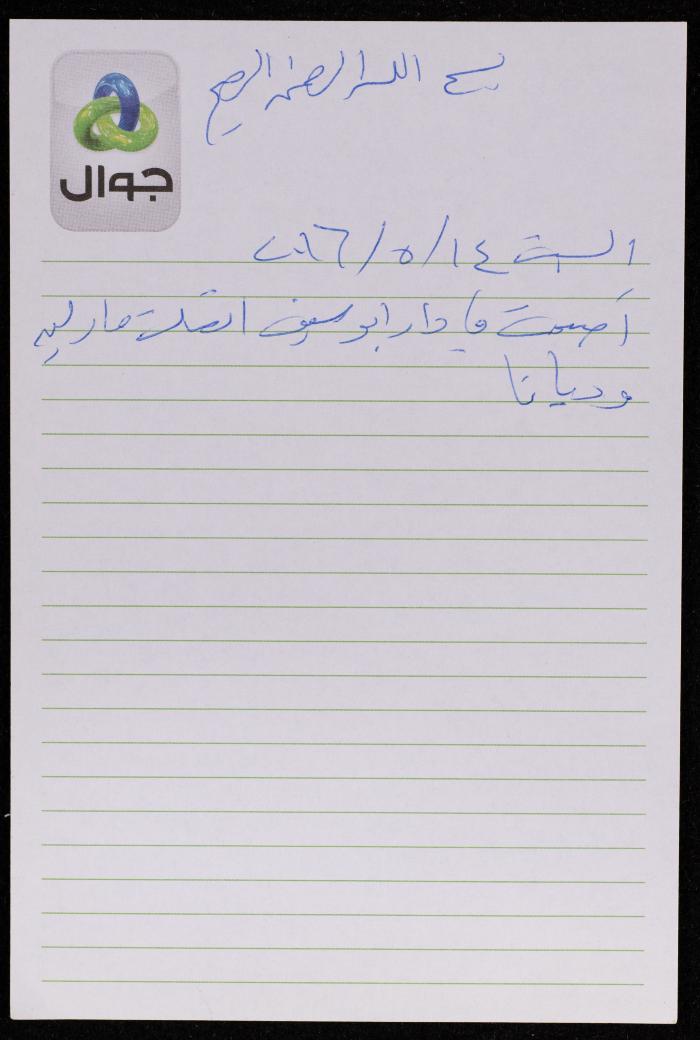 بسم الله الرحمن الرحيم
جوال
السبت ١٤/٥/٢٠١٦
أصبحت في دار ابو سيف اتصلت مارلين
وديانا